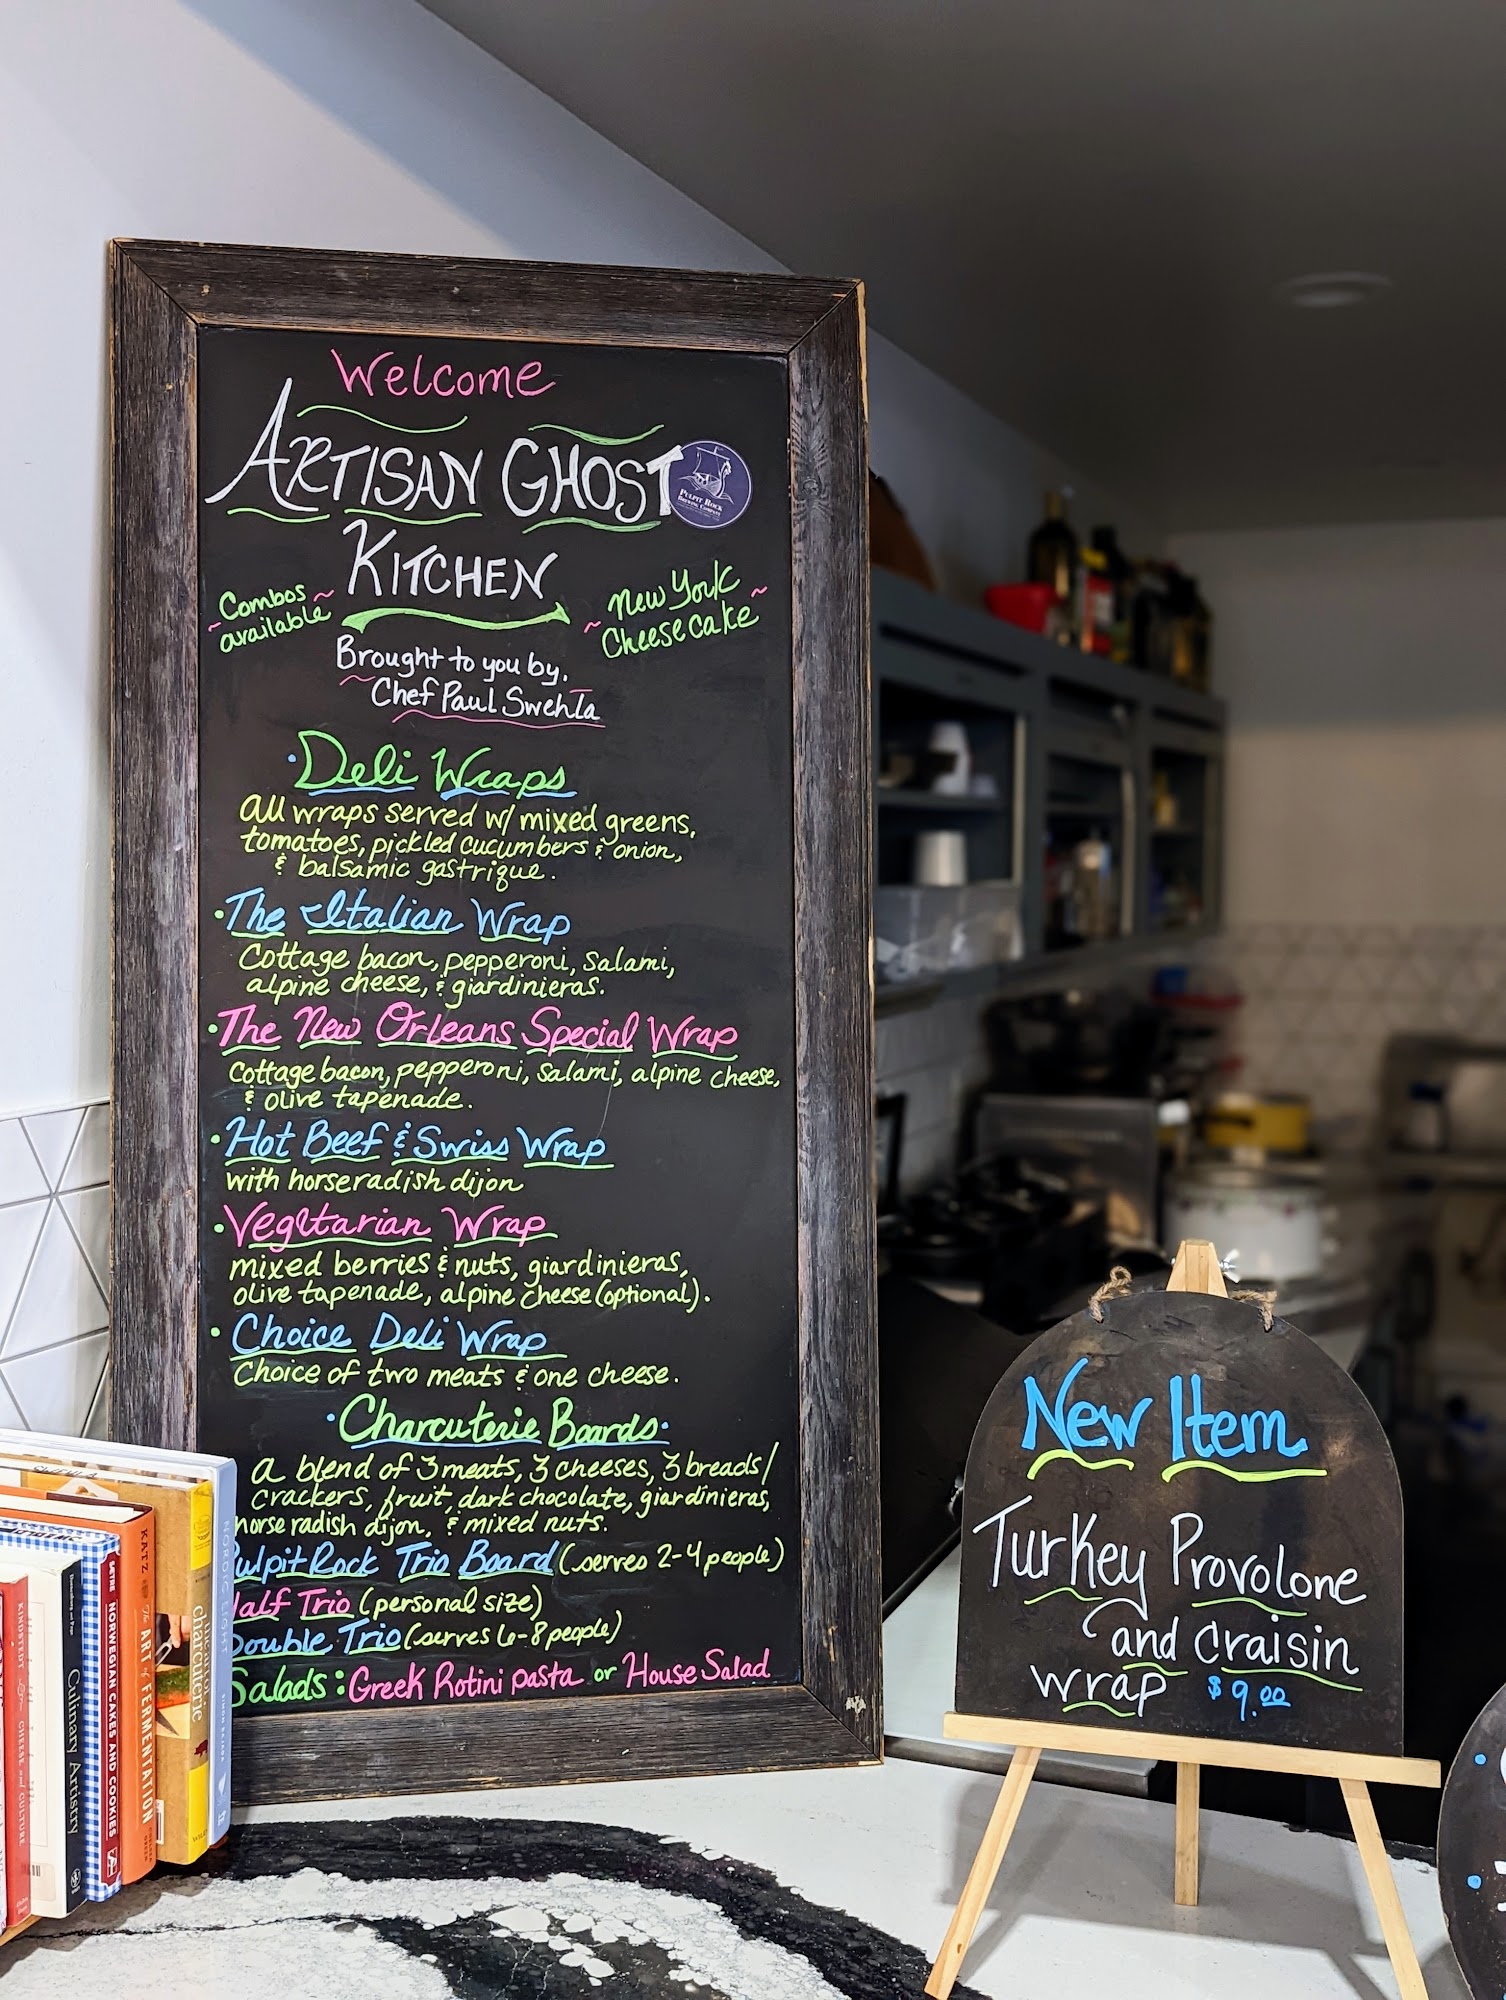 Welcome
ARTISAN GHOST
KITCHEN
PULPIT ROCK
BREWING COMPANY
~Combos~
available
~New York~
Cheesecake
Brought to you by.
Chef Paul Swehla
·Deli Wraps
all wraps served w/ mixed greens,
tomatoes, pickled cucumbers & onion,
& balsamic gastrique.
·The Italian Wrap
Cottage bacon, pepperoni, salami,
alpine cheese, & giardinieras.
·The New Orleans Special Wrap
Cottage bacon, pepperoni, salami, alpine cheese,
& olive tapenade.
·Hot Beef & Swiss Wrap
with horseradish dijon
·Vegetarian Wrap
mixed berries & nuts, giardinieras,
olive tapenade, alpine cheese (optional).
·Choice Deli Wrap
Choice of two meats & one cheese.
·Charcuterie Boards·
a blend of 3 meats, 3 cheeses, 3 breads/
crackers, fruit, dark chocolate, giardinieras,
horse radish dijon, & mixed nuts.
Pulpit Rock Trio Board (serves 2-4 people)
Half Trio (personal size)
Double Trio (serves 6-8 people)
Salads: Greek Rotini pasta or House Salad
New Item
Turkey Provolone
and craisin
wrap $9.00
KINDSTEDT CHEESE AND CULTURE
Culinary Artistry
NORWEGIAN CAKES AND COOKIES
KATZ The ART of FERMENTATION
charcuterie
NORDIC LIGHT